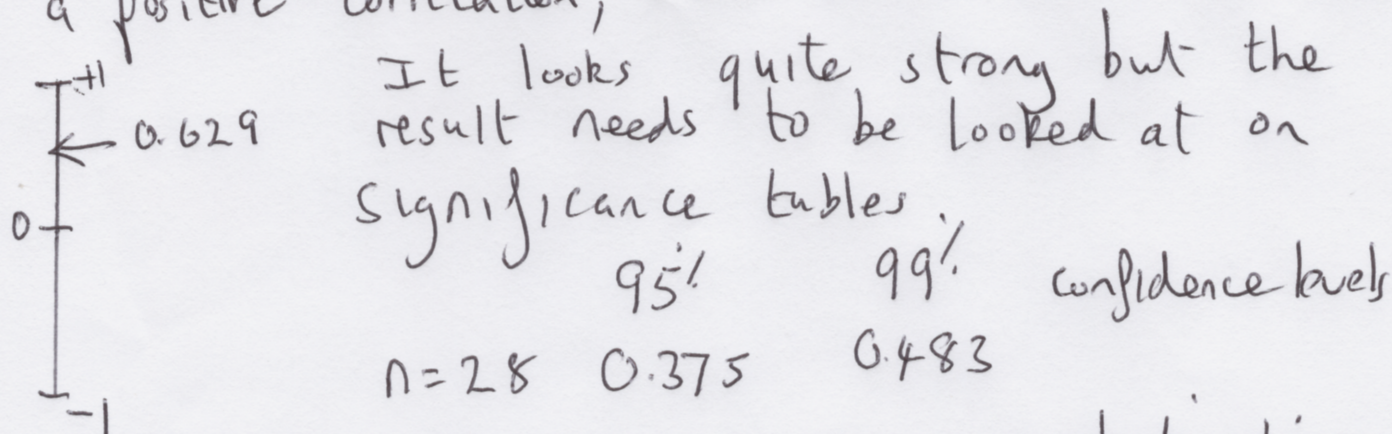 a positive correlation,
+1
It looks quite strong but the
0.629
result needs to be looked at on
significance tables.
0
95% 99% confidence levels
n=28 0.375 0.483
-1